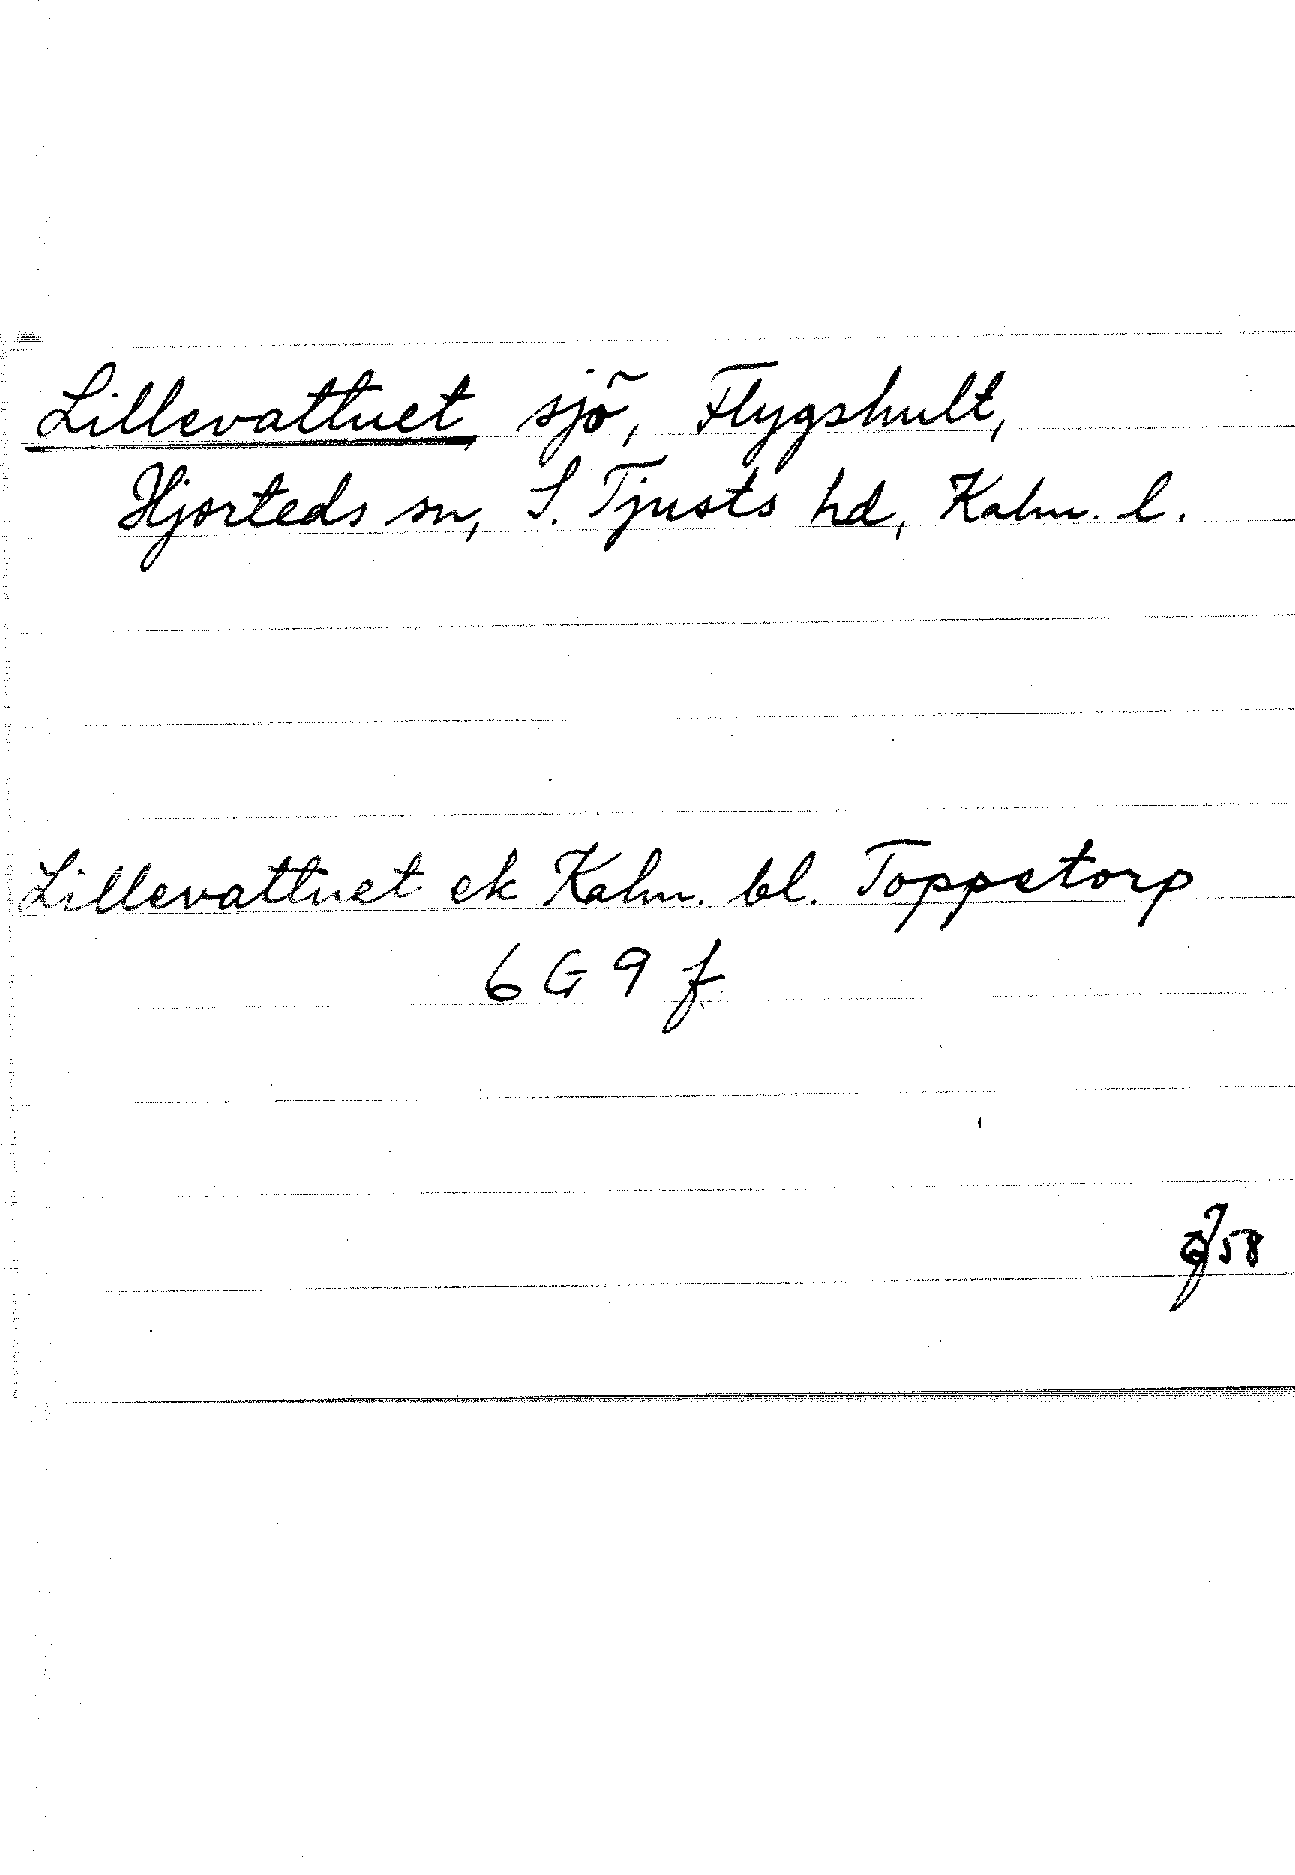 Lillevattnet sjö, Flygshult,
Hjorteds sn, S. Tjusts hd, Kalm. l.
Lillevattnet ek Kalm. bl. Toppetorp
6 G 9 f
58